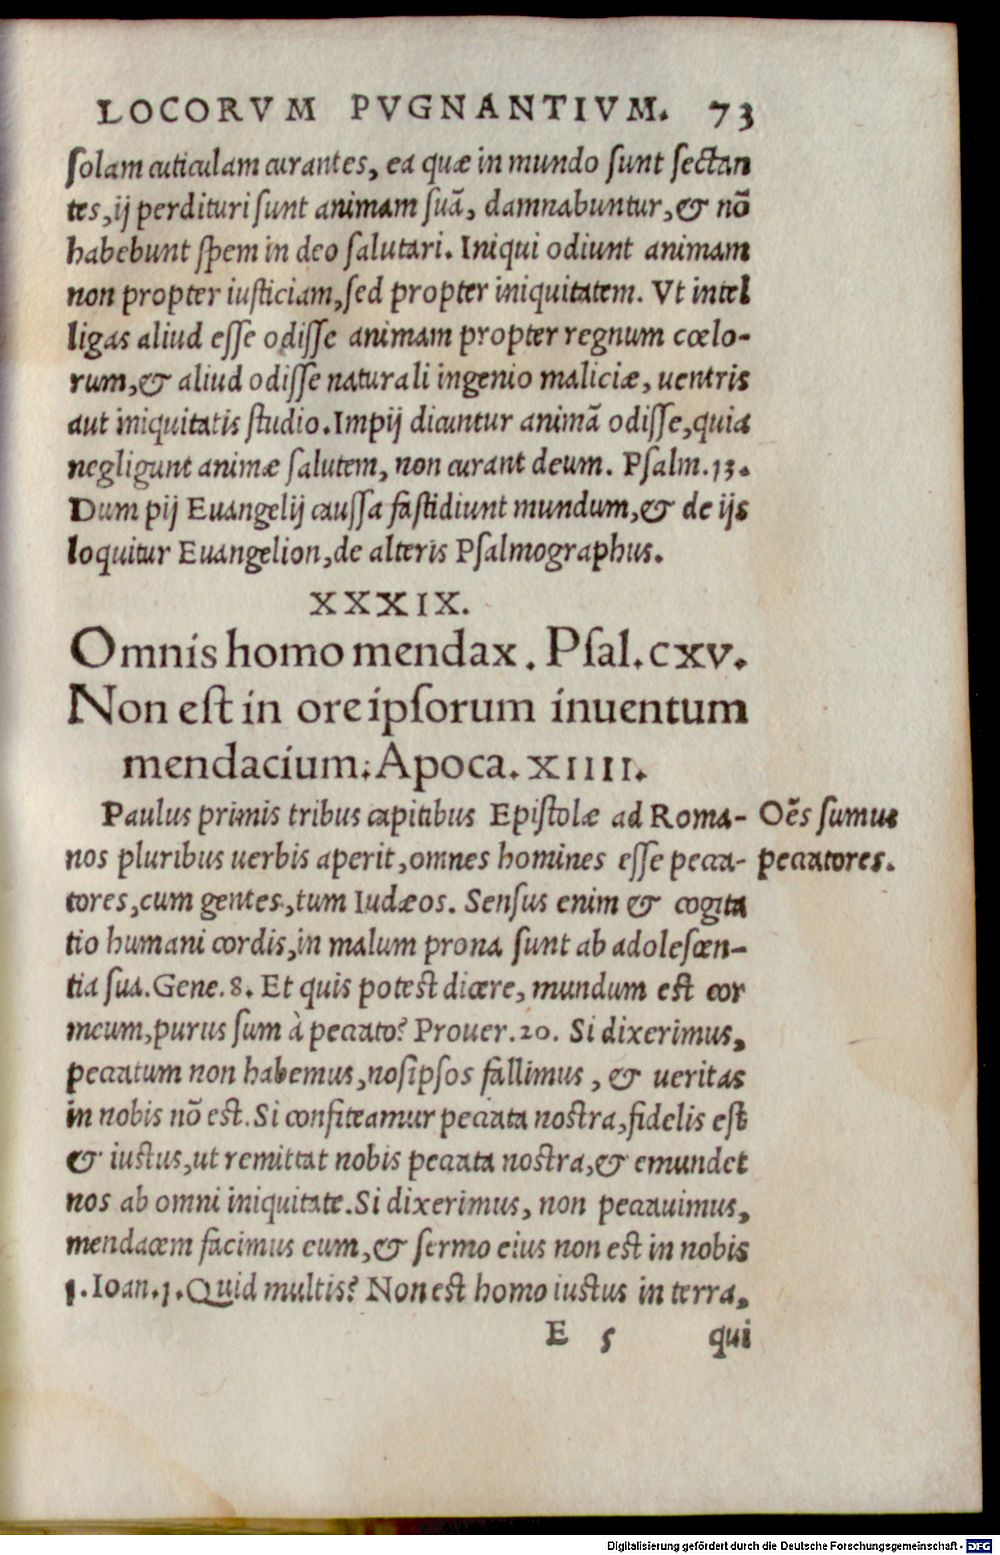 LOCORVM PVGNANTIVM. 73
solam cuticulam curantes, ea quæ in mundo sunt sectan
tes, ij perdituri sunt animam suā, damnabuntur, & nō
habebunt spem in deo salutari. Iniqui odiunt animam
non propter iusticiam, sed propter iniquitatem. Vt intel
ligas aliud esse odisse animam propter regnum cœlo-
rum, & aliud odisse naturali ingenio maliciæ, uentris
aut iniquitatis studio. Impij dicuntur animā odisse, quia
negligunt animæ salutem, non curant deum. Psalm. 13.
Dum pij Euangelij caussa fastidiunt mundum, & de ijs
loquitur Euangelion, de alteris Psalmographus.
XXXIX.
Omnis homo mendax. Psal. CXV.
Non est in ore ipsorum inuentum
mendacium. Apoca. XIIII.
Paulus primis tribus capitibus Epistolæ ad Roma-
Oēs sumus
nos pluribus uerbis aperit, omnes homines esse pecca-
peccatores.
tores, cum gentes, tum Iudæos. Sensus enim & cogita
tio humani cordis, in malum prona sunt ab adolescen-
tia sua. Gene. 8. Et quis potest dicere, mundum est cor
meum, purus sum à peccato? Prouer. 20. Si dixerimus,
peccatum non habemus, nosipsos fallimus, & ueritas
in nobis nō est. Si confiteamur peccata nostra, fidelis est
& iustus, ut remittat nobis peccata nostra, & emundet
nos ab omni iniquitate. Si dixerimus, non peccauimus,
mendacem facimus eum, & sermo eius non est in nobis
1. Ioan. 1. Quid multis? Non est homo iustus in terra,
E 5 qui
Digitalisierung gefördert durch die Deutsche Forschungsgemeinschaft - DFG